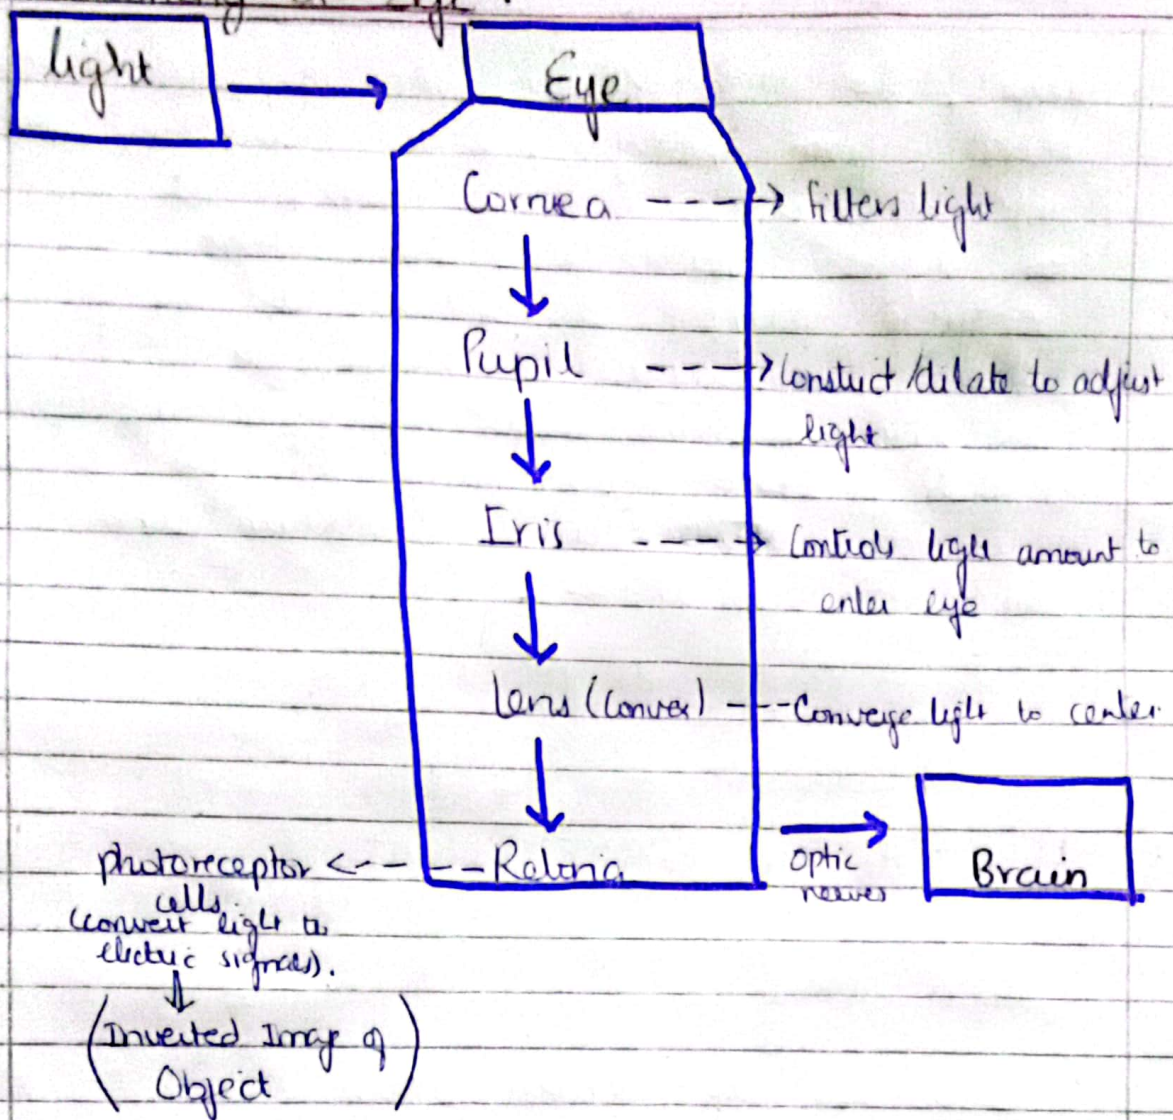 of Eye
light
Eye
Cornea
filters light
Pupil
Constrict/dilate to adjust
light
Iris
Controls light amount to
enter eye
lens (Convex)
Converge light to center.
Retina
photoreceptor
cells
(convert light to
electric signals).
(Inverted Image of
Object)
Optic
nerves
Brain